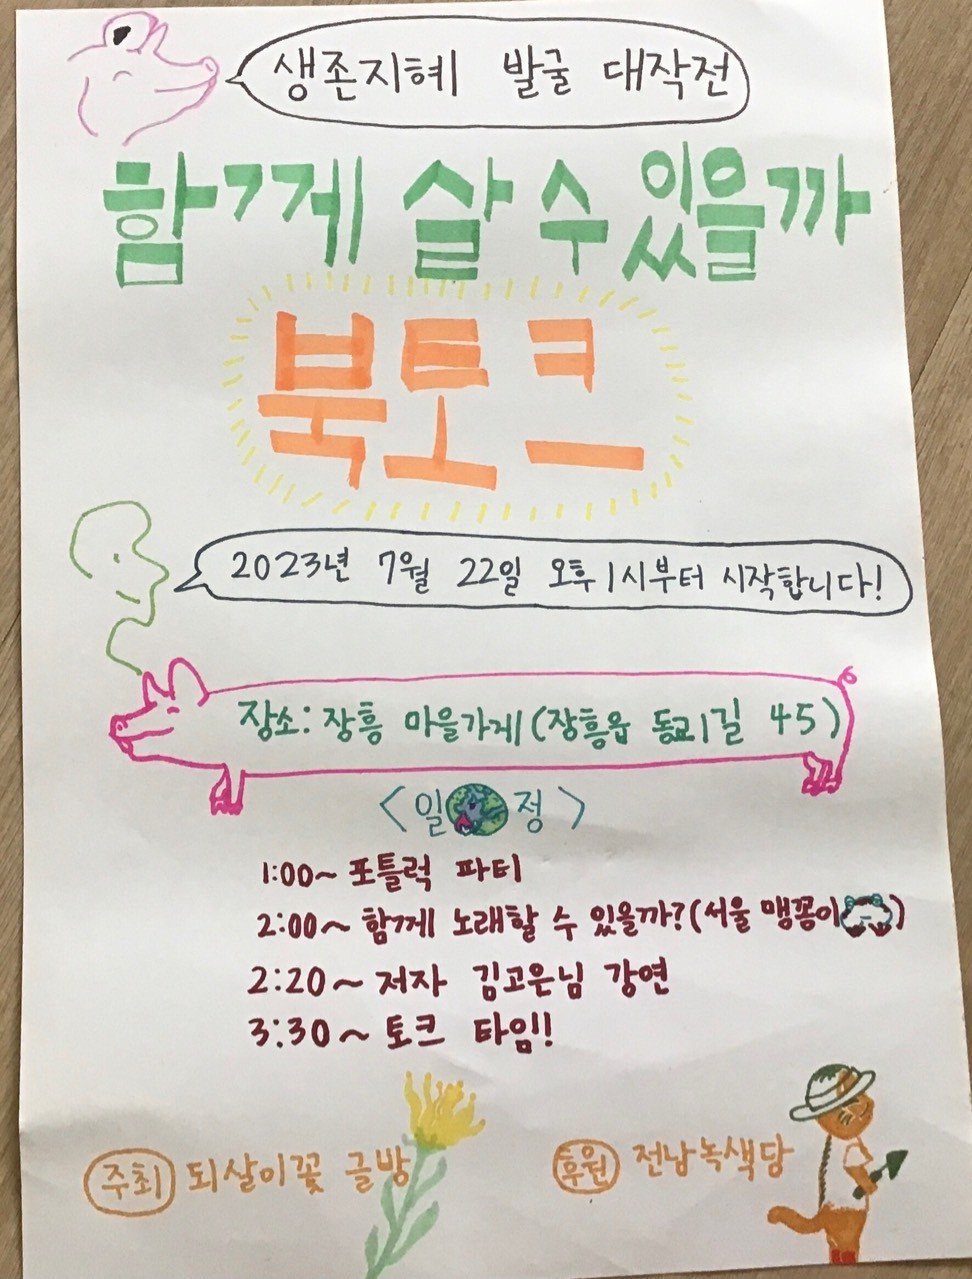 생존지혜 발굴 대작전
함께 살 수 있을까
북토크
2023년 7월 22일 오후 1시부터 시작합니다!
장소: 장흥 마을가게 (장흥읍 동교1길 45)
<일정>
1:00~ 포틀럭 파티
2:00~ 함께 노래할 수 있을까? (서울 맹꽁이)
2:20~ 저자 김고은님 강연
3:30~ 토크 타임!
주최 되살이꽃 글방
후원 전남녹색당